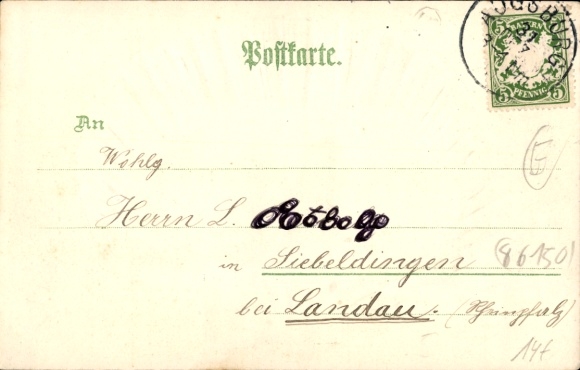 Postkarte.
AUGSBURG
BAYERN
5 5
PFENNIG
An
Wohlg.
Herrn L.
in Siebeldingen (86150)
bei Landau. (Rheinpfalz)